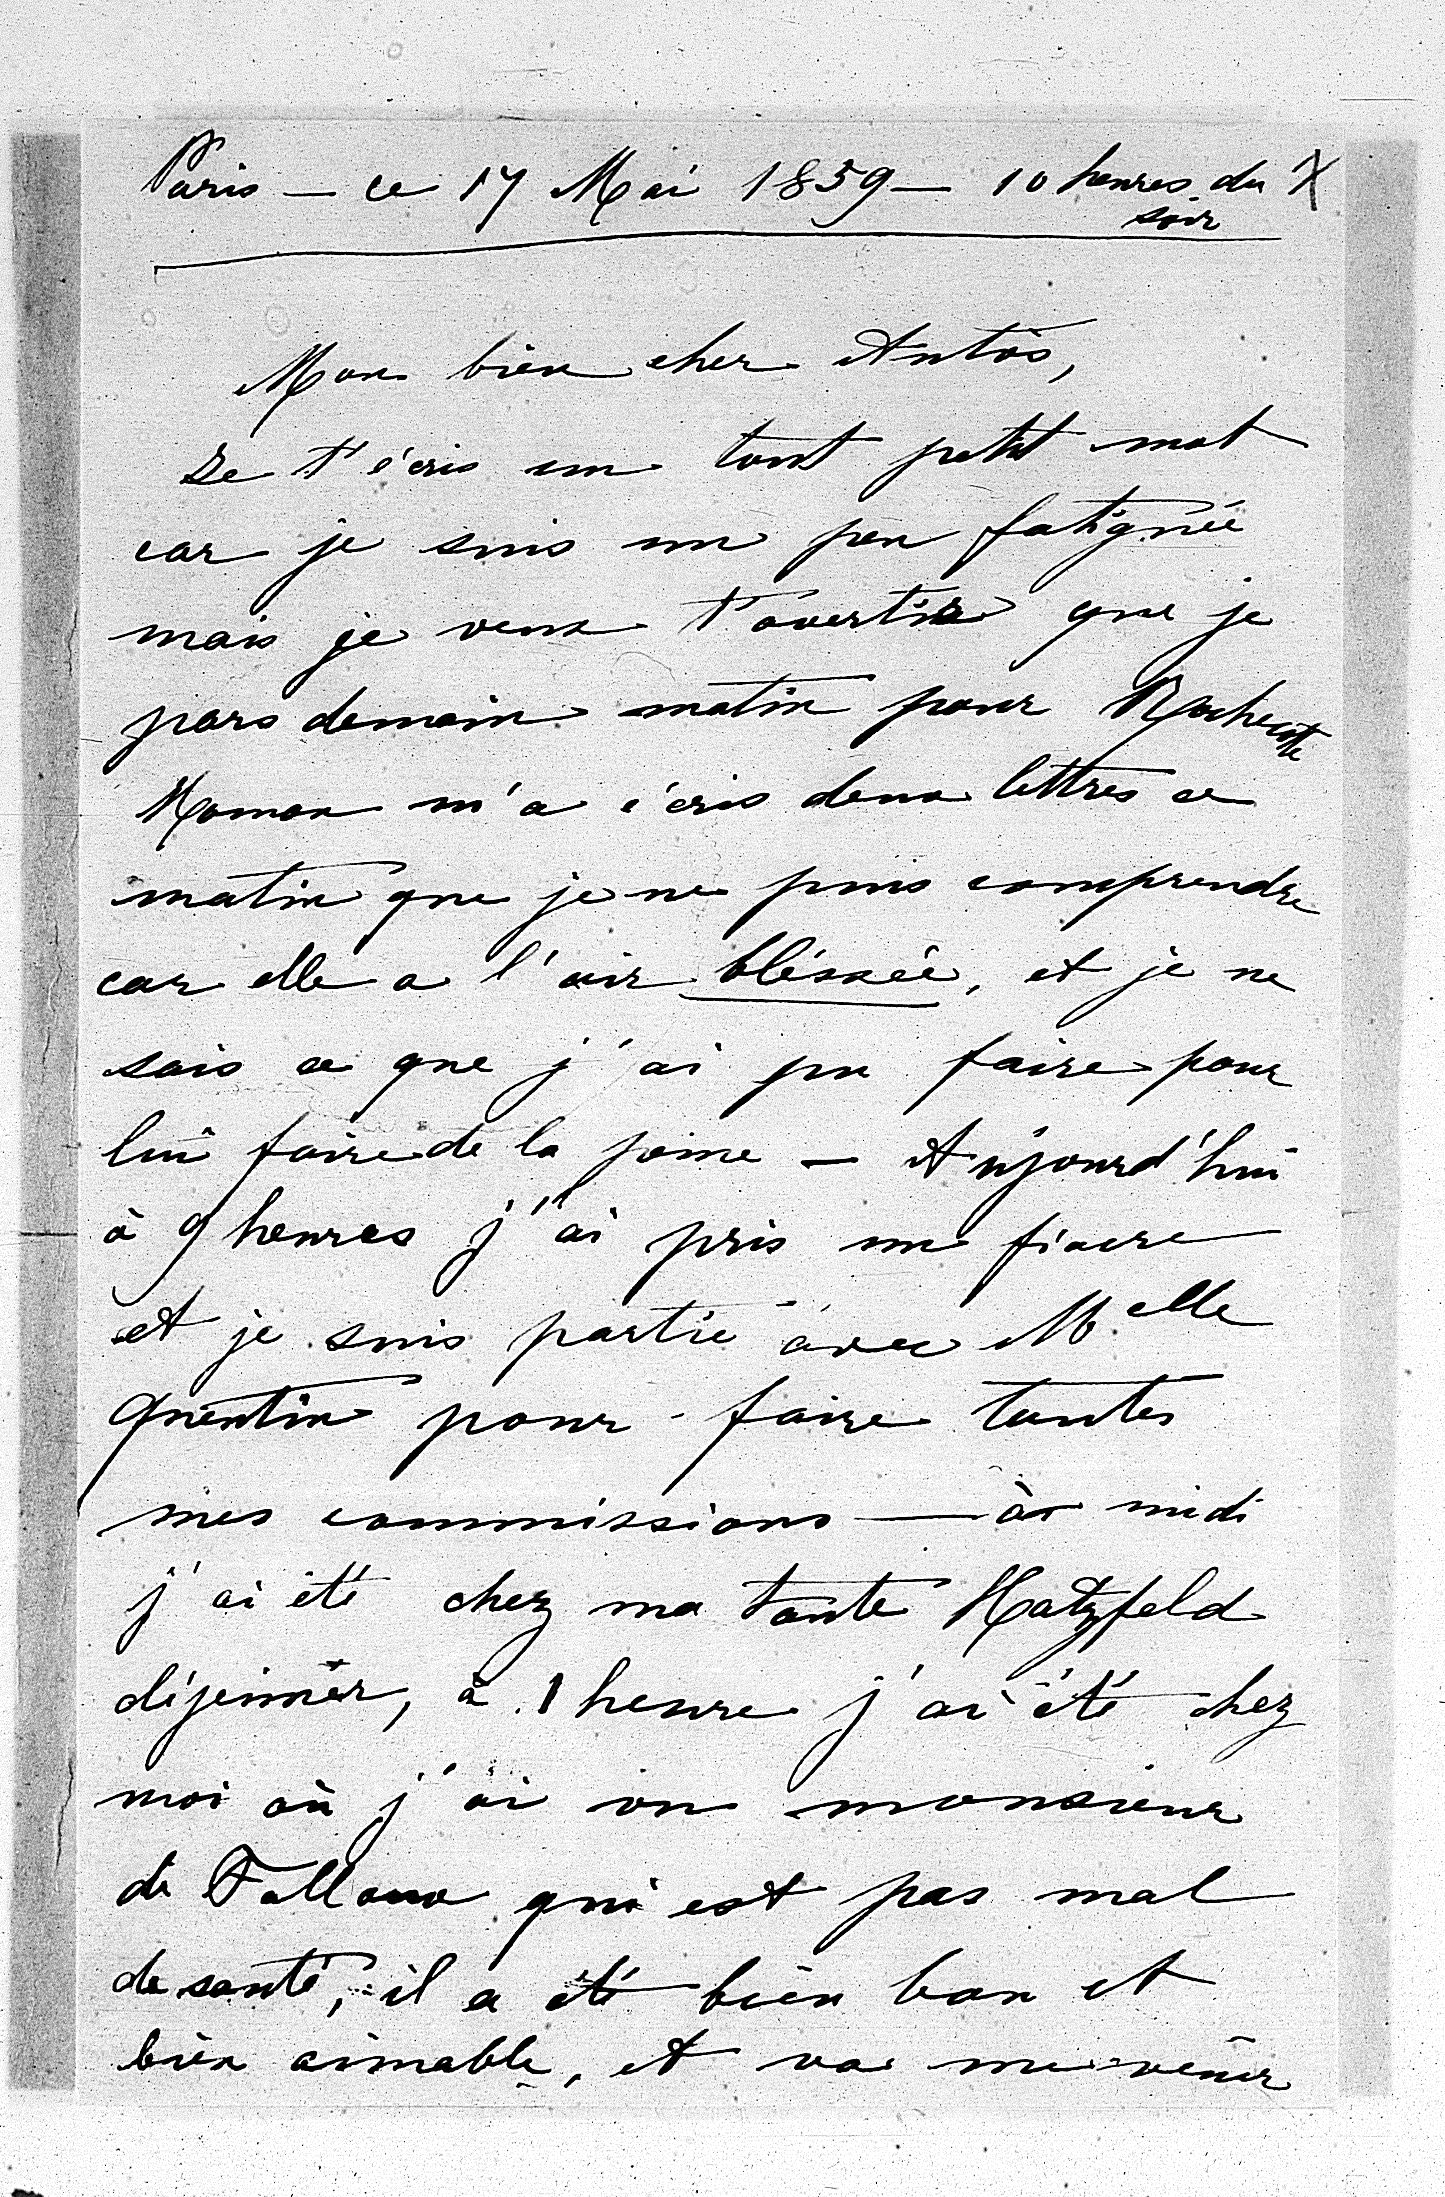 Paris — ce 17 Mai 1859 — 10 heures du
soir
Mon bien cher Antos,
Je t'écris un tout petit mot
car je suis un peu fatiguée
mais je veux t'avertir que je
pars demain matin pour Rochecotte
Maman m'a écris deux lettres ce
matin que je ne puis comprendre
car elle a l'air bléssée, et je ne
sais ce que j'ai pu faire pour
lui faire de la peine — Aujourd'hui
à 9 heures j'ai pris un fiacre
et je suis partie avec Melle
Quentin pour faire toutes
mes commissions — à midi
j'ai été chez ma tante Hatzfeld
déjeuner, à 1 heure j'ai été chez
moi où j'ai vu monsieur
de Falloux qui est pas mal
de santé, il a été bien bon et
bien aimable, et va me venir